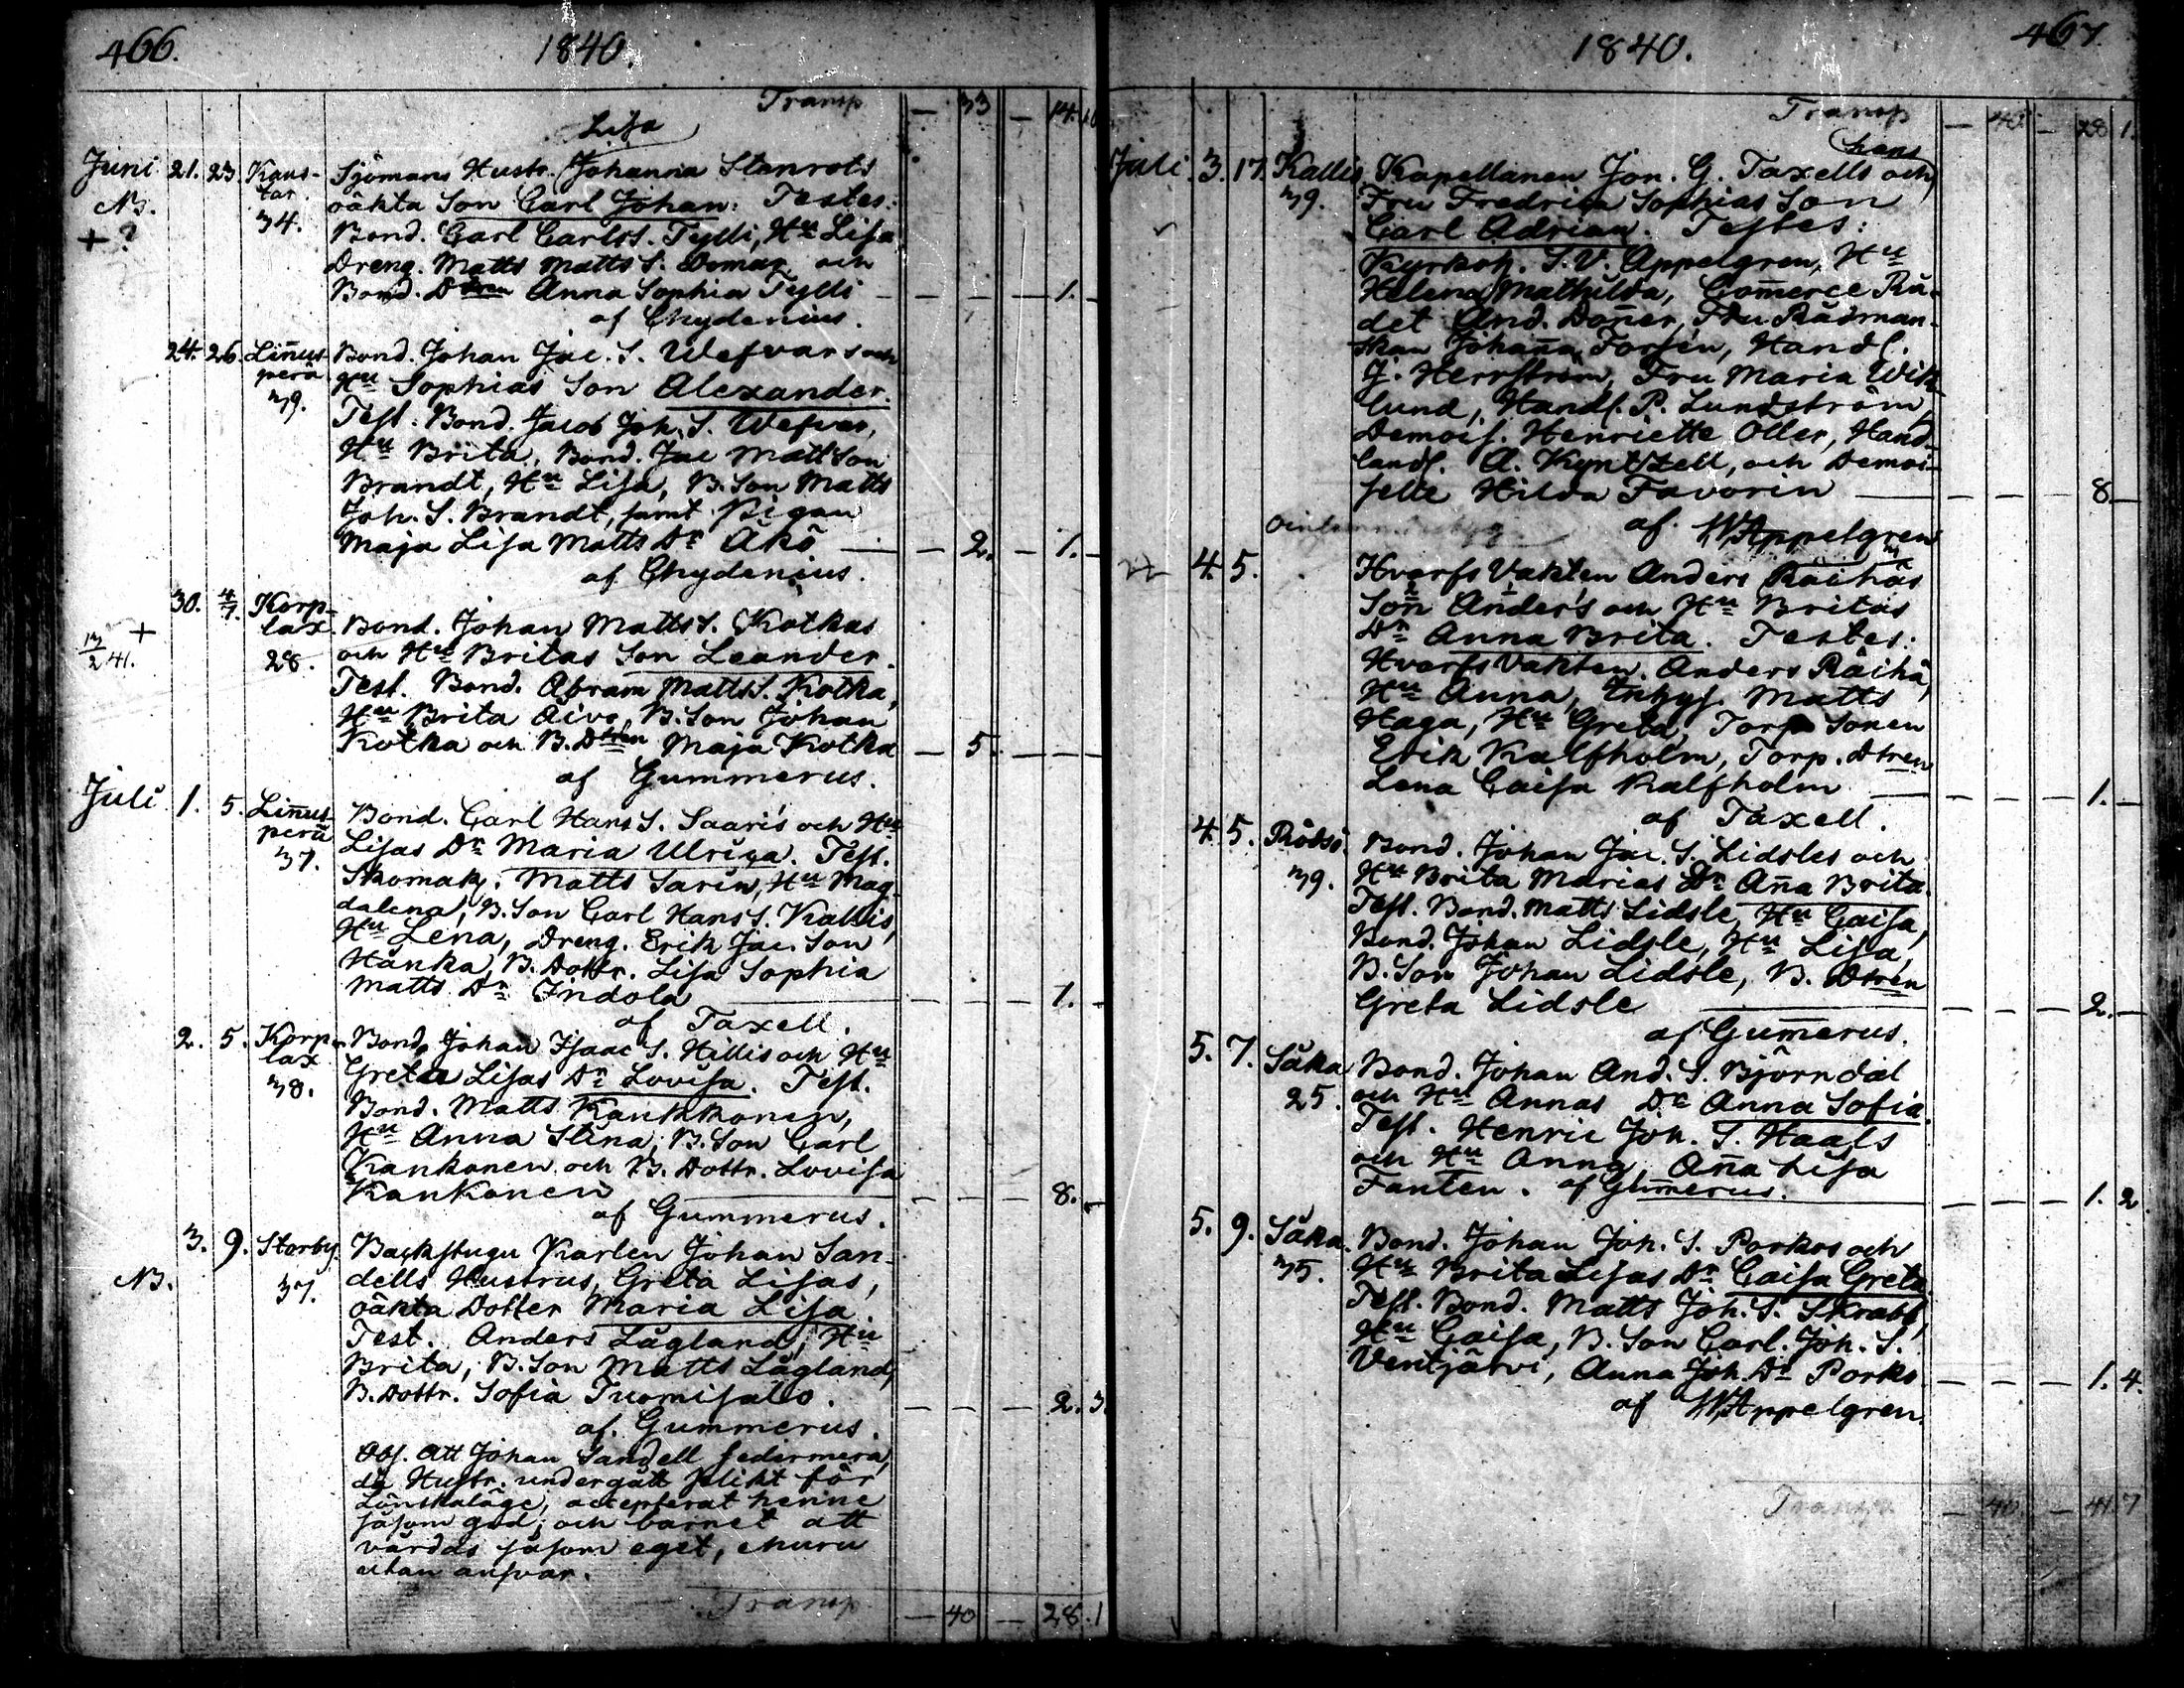 466. 1840.
Transp — 33 — 14.
Lisa
Juni 21. 23. Kaus- Sjömans Hustr. Johanna Stenrots
NB. tar. oäkta Son Carl Johan. Testes:
+ ? 34. Bond. Carl Carlss. Tylli, Hu Lisa
Dreng. Matts Matts S. Domar och
Bond. Dtren Anna Sophia Tylli — — — 1. —
af Chydenius.
24. 26. Linus- Bond. Johan Jac. S. Wefvars och
perä Hu Sophias Son Alexander.
39. Test. Bond. Jacob Joh. S. Wefvar,
Hu Brita, Bond. Jac Mattson
Brandt, Hu Lisa, B. Son Matts
Joh. S. Brandt, samt Pigan
Maja Lisa Matts Dr Åkö — — 2. — 1. —
af Chydenius.
30. 4/7. Korp-
+ lax. Bond. Johan Matts S. Kotkas
13/2 41. 28. och Hu Britas Son Leander.
Test. Bond. Abram Matts S. Kotka,
Hu Brita Aivo, B. Son Johan
Kotka och B. Dtren Maja Kotka — 5. — — —
af Gummerus.
Juli 1. 5. Linus- Bond. Carl Hans S. Saaris och Hu
perä Lisas Dr Maria Ulrica. Test.
37. Skomak. Matts Sarin, Hu Mag-
dalena, B. Son Carl Hans S. Kallis,
Hu Lena, Dreng. Erik Jac. Son
Hanka, B. Dottr. Lisa Sophia
Matts Dr Indola — — — 1. —
af Taxell.
2. 5. Korp- Bond. Johan Isaac S. Hillis och Hu
lax Greta Lisas Dr Lovisa. Test.
38. Bond. Matts Kankkonen,
Hu Anna Stina, B. Son Carl
Kankonen och B. Dottr. Lovisa
Kankonen — — — 8. —
af Gummerus.
3. 9. Storby. Backstugu Karlen Johan San-
NB. dells Hustrus, Greta Lisas,
37. oäkta Dotter Maria Lisa
Test. Anders Lågland, Hu
Brita, B. Son Matts Lågland,
B. Dottr. Sofia Tuomisalo. — — — 2. 3.
af. Gummerus.
Obs. att Johan Sandell sedermera,
då Hustr. undergått plikt för
Lönskaläge, accepterat henne
såsom god; och barnet att
vårdas såsom eget, ehuru
utan ansvar.
Transp. — 40 — 28. 1
1840. 467.
Transp — 40. — 28 1.
hans
Juli. 3. 17. Kallis Kapellanen Jon. G. Taxells och
39. Fru Fredrica Sophias Son
Carl Adrian. Testes:
Kyrkoh. S. V. Appelgren, Hu
Helena Mathilda, Commerce Rå-
det And. Donner, Fru Rådman-
skan Johanna Forsén, Handl.
J. Herrström, Fru Maria Wik-
lund, Handl. P. Lundström,
Demois. Henriette Oller, Hand-
landl. A. Kyntzell, och Demoi-
selle Hilda Favorin — — — 8 —
af. W Appelgren
4. 5. Hvarfs Vakten Anders Räihäs
Son Anders och Hu Britas
Dr Anna Brita. Testes:
Hvarfs Vakten Anders Räihä,
Hu Anna, Inhys. Matts
Haga, Hu Greta, Torp Sonen
Erik Kalfholm, Torp. Dtren
Lena Caisa Kalfholm — — — 1. —
af Taxell.
4. 5. Rödsö. Bond. Johan Jac. S. Lidsles och
39. Hu Brita Marias Dr Anna Brita.
Test. Bond. Matts Lidsle, Hu Caisa,
Bond. Johan Lidsle, Hu Lisa,
B. Son Johan Lidsle, B. Dtren
Greta Lidsle — — — 2. —
af Gumerus.
5. 7. Såka Bond. Johan And. S. Björndal
25. och Hu Annas Dr Anna Sofia.
Test. Henric Joh. S. Haals
och Hu Anna, Anna Lisa
Fanten. af Gumerus. — — — 1. 2
5. 9. Såka. Bond. Johan Joh. S. Porkos och
35. Hu Brita Lisas Dr Caisa Greta.
Test. Bond. Matts Joh. S. Skrabb,
Hu Caisa, B. Son Carl. Joh. S.
Ventjärvi, Anna Joh. Dr Porko — — — 1. 4.
af W Appelgren.
Transp. — 40. — 41. 7